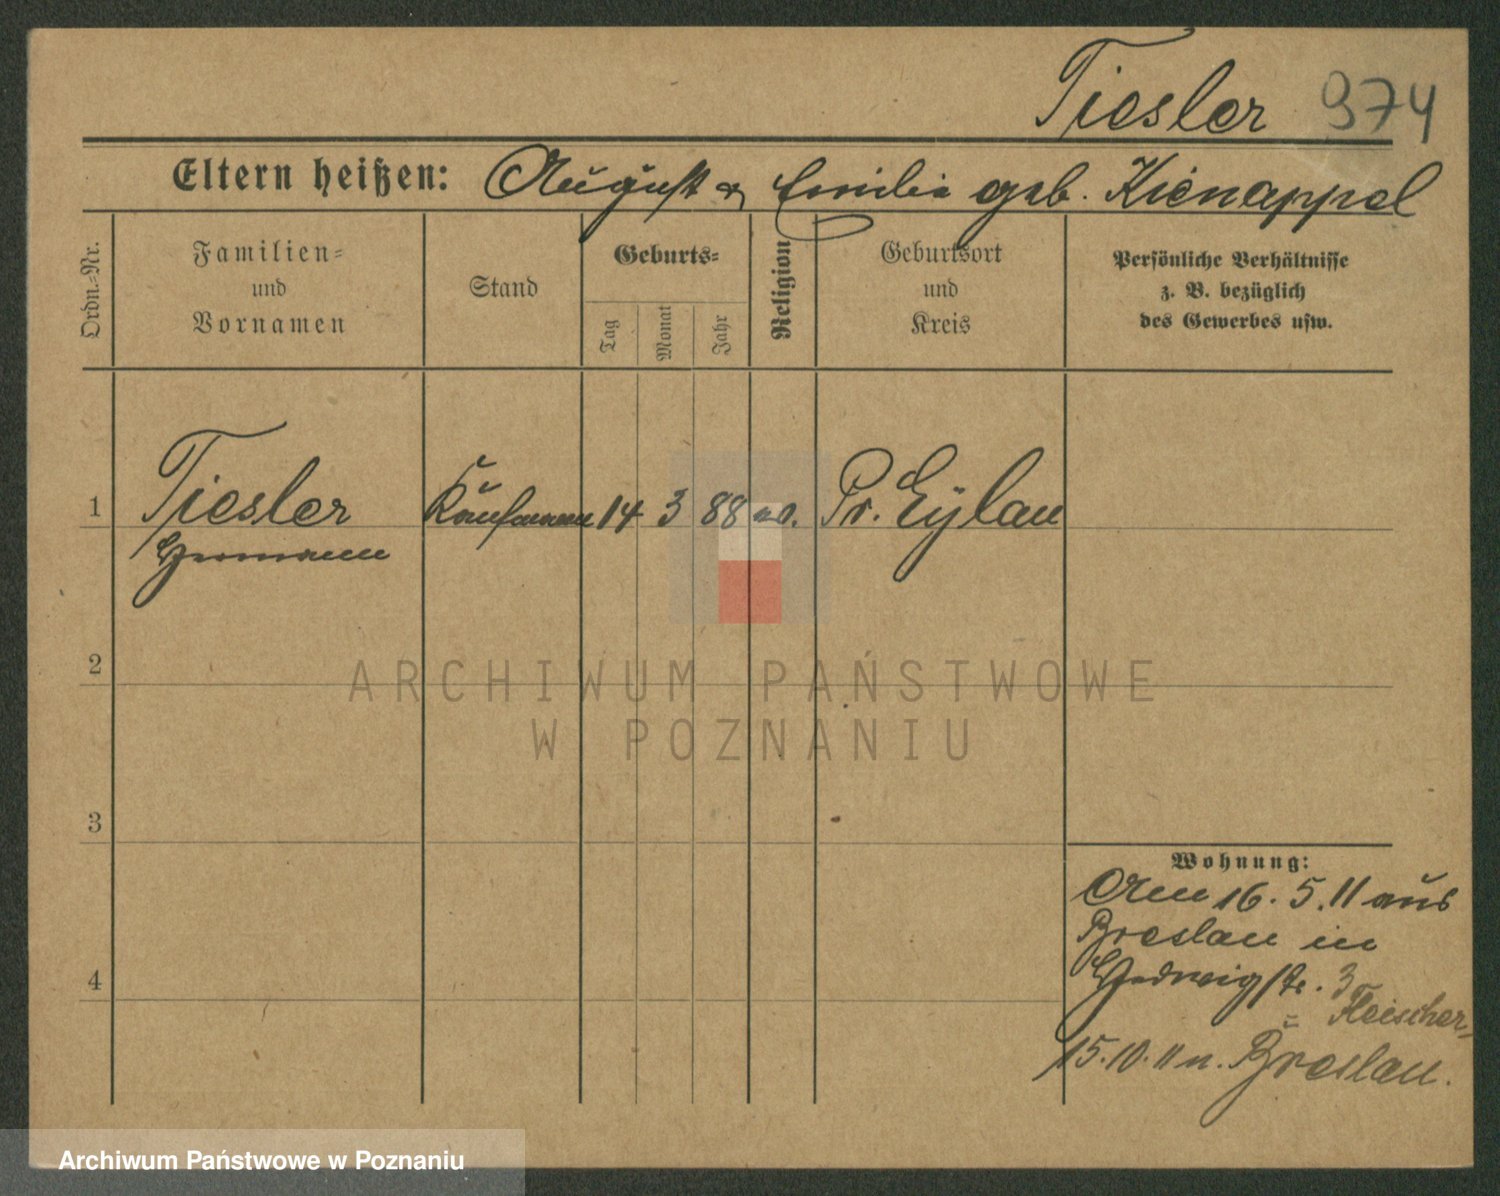 Tiesler 974
Eltern heißen: August & Emilie geb. Kienappel
Ordn.-Nr.
Familien-
und
Vornamen
Stand
Geburts-
Tag
Monat
Jahr
Religion
Geburtsort
und
Kreis
Persönliche Verhältnisse
z. B. bezüglich
des Gewerbes usw.
1 Tiesler Kaufmann 14 3 88 ev. Pr. Eylau
Hermann
2
3
4
Wohnung:
Am 16. 5. 11 aus
Breslau in
Hedwigstr. 3
Fleischer
15. 10. 11 n. Breslau.
ARCHIWUM PAŃSTWOWE
W POZNANIU
Archiwum Państwowe w Poznaniu